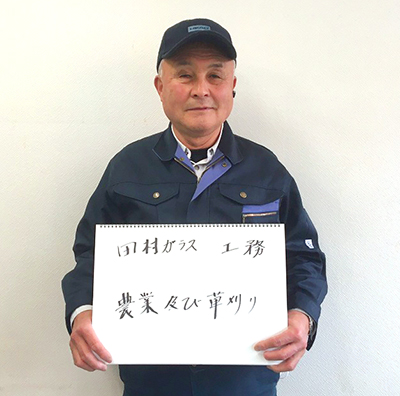 田村ガラス 工務
農業及び草刈り